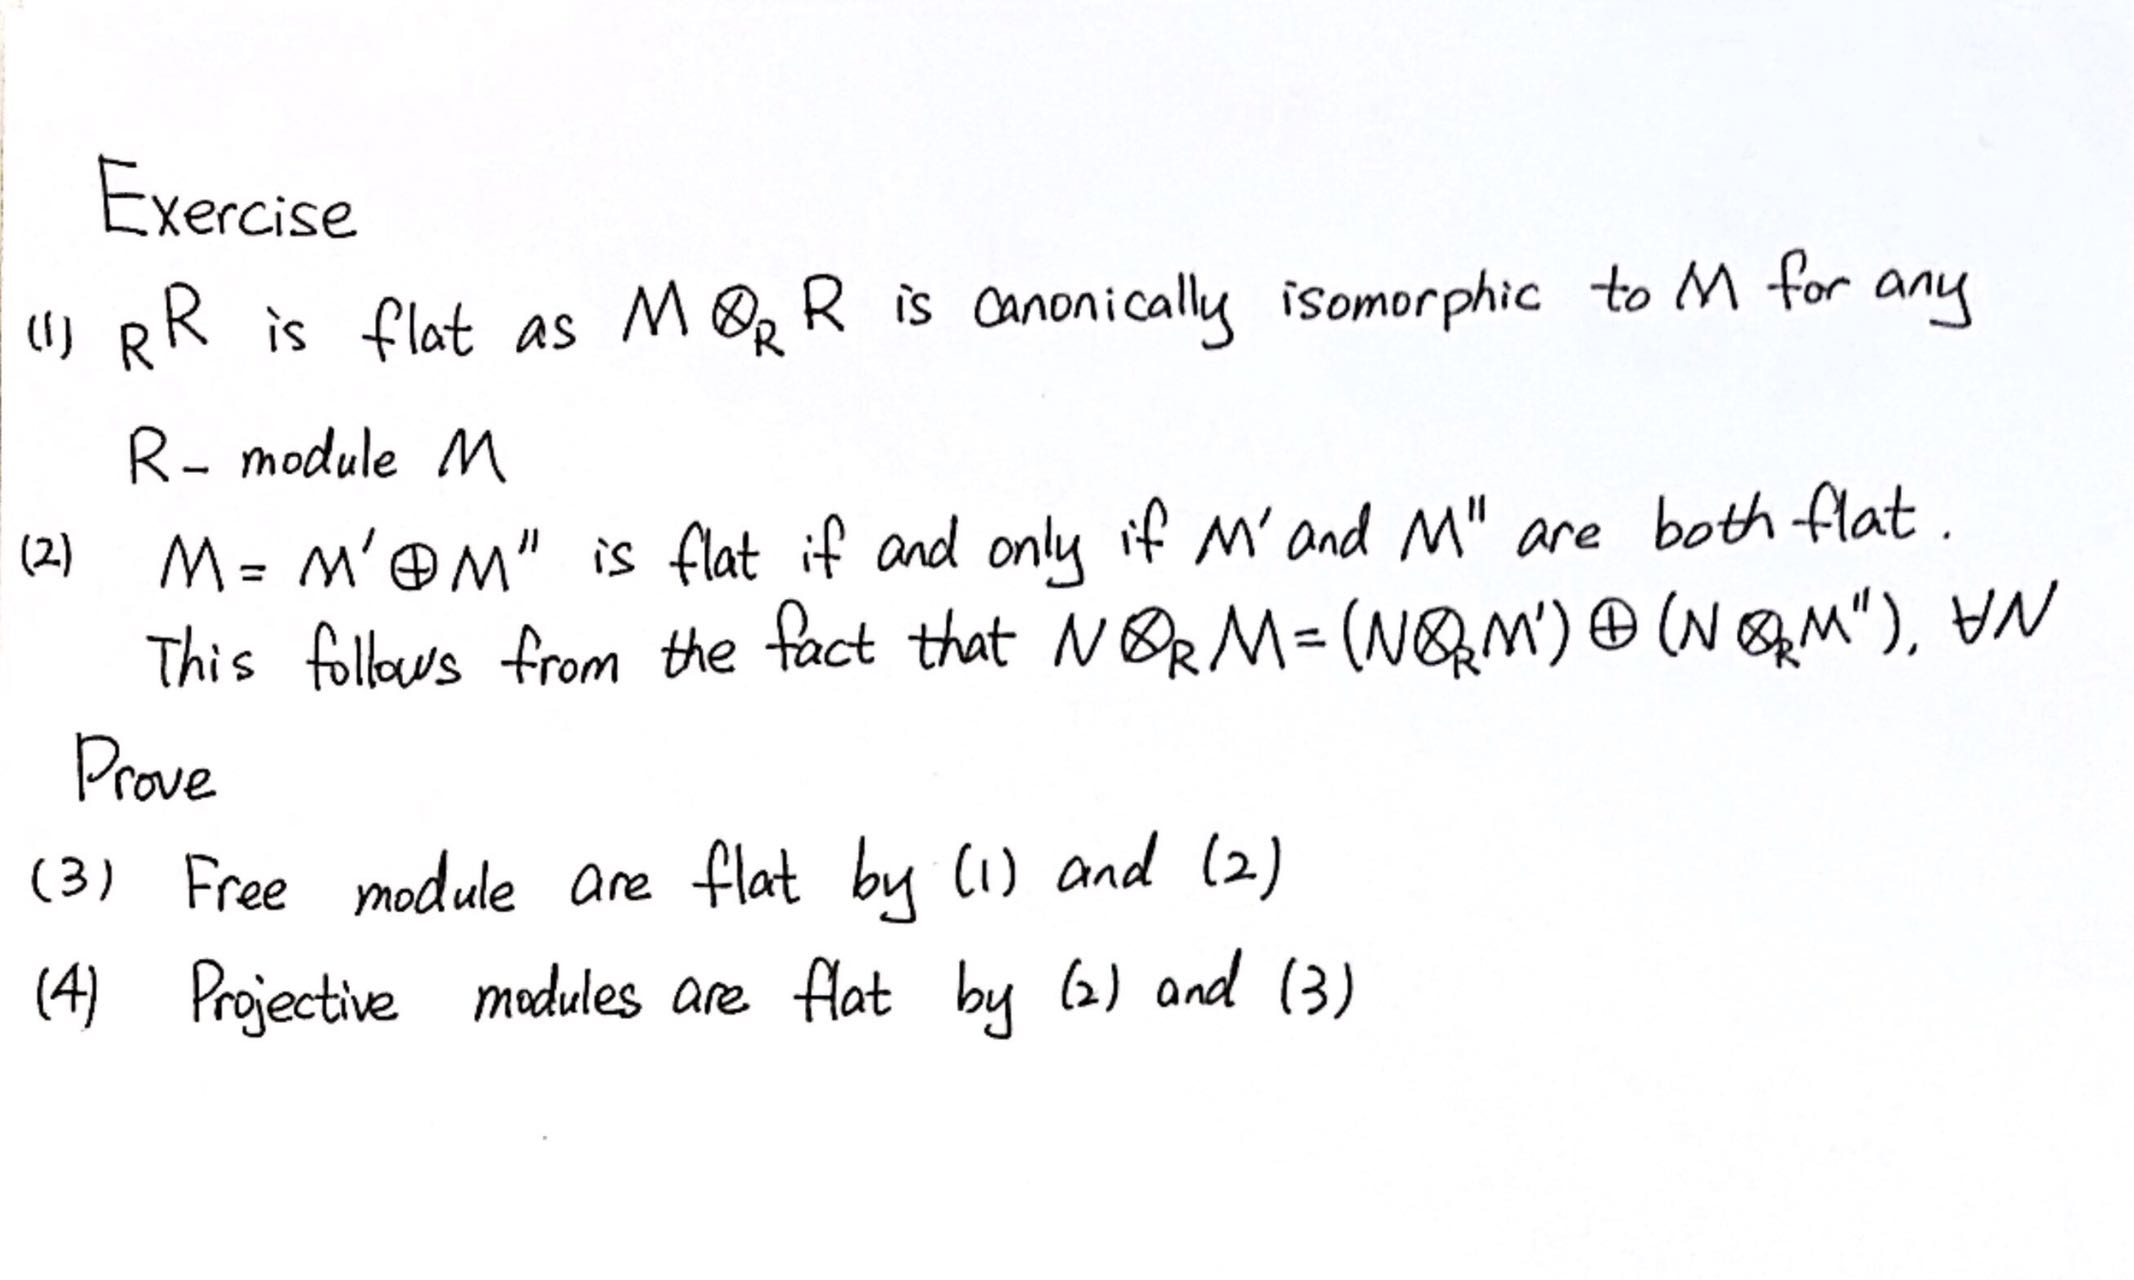 Exercise
(1) RR is flat as M ⊗R R is canonically isomorphic to M for any
R- module M
(2) M = M' ⊕ M" is flat if and only if M' and M" are both flat.
This follows from the fact that N ⊗R M = (N⊗R M') ⊕ (N ⊗R M"), ∀N
Prove
(3) Free module are flat by (1) and (2)
(4) Projective modules are flat by (2) and (3)